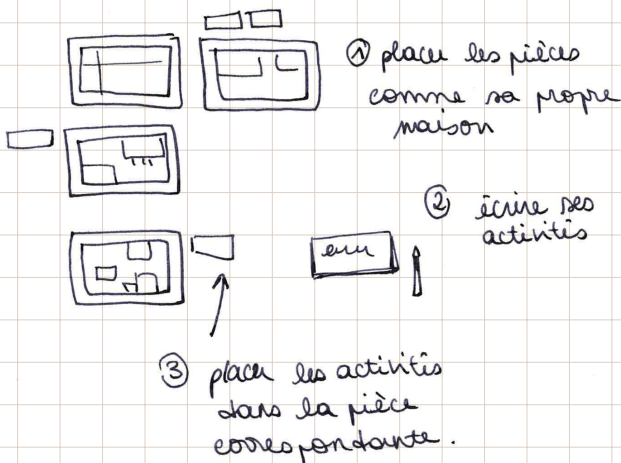 ① placer les pièces
comme sa propre
maison
② écrire ses
activités
③ placer les activités
dans la pièce
correspondante.